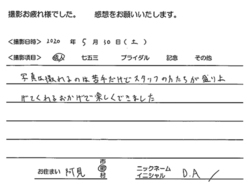 撮影お疲れ様でした。　感想をお願いいたします。
<撮影日時> 2020 年 5 月 30 日 (土)
<撮影項目> 成人 七五三 ブライダル 記念 その他
写真は撮れるのは苦手だけどスタッフの方たちが盛り上
がてくれるおかげで楽しくできました
お住まい 阿見 市 町 村 ニックネーム イニシャル D.A